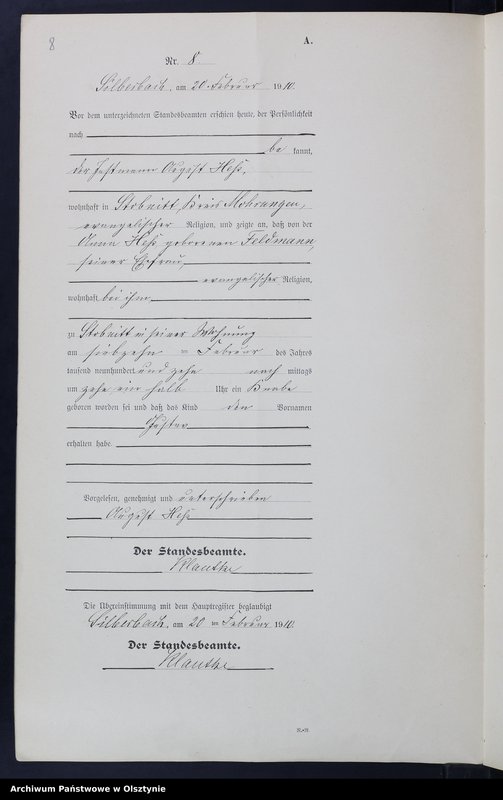 8
A.
Nr. 8
Silberbach, am 20. Februar 1910.
Vor dem unterzeichneten Standesbeamten erschien heute, der Persönlichkeit
nach
be kannt,
der Instmann August Heß,
wohnhaft in Stobnitt, Kreis Mohrungen,
evangelischer Religion, und zeigte an, daß von der
Anna Heß geborenen Feldmann,
seiner Ehefrau
evangelischer Religion,
wohnhaft bei ihm
zu Stobnitt in seiner Wohnung
am siebzehn ten Februar des Jahres
tausend neunhundert und zehn nach mittags
um zehn ein halb Uhr ein Knabe
geboren worden sei und daß das Kind den Vornamen
Gustav
erhalten habe.
Vorgelesen, genehmigt und unterschrieben
August Heß
Der Standesbeamte.
Klautke
Die Übereinstimmung mit dem Hauptregister beglaubigt
Silberbach, am 20 ten Februar 1910.
Der Standesbeamte.
Klautke
Archiwum Państwowe w Olsztynie